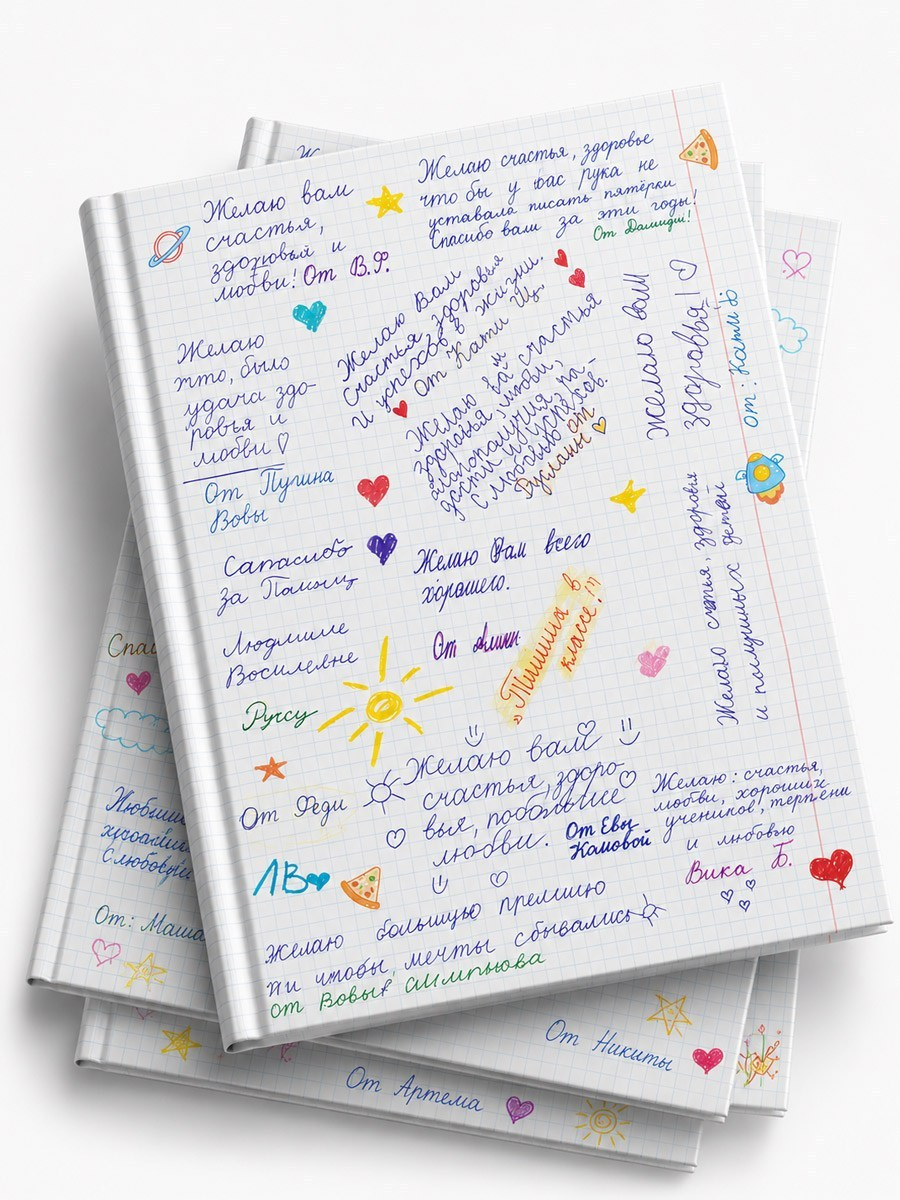 Желаю вам
счастья,
здоровья и
любви! От В.Ф.
Желаю счастья, здоровье
что бы у вас рука не
уставала писать пятёрки
Спасибо вам за эти годы!
От Дамиди!
Желаю Вам
счастья, здоровья
и успехов в жизни.
От Кати Щ.
Желаю
што, было
удача здо-
ровья и
любви
От Пугина
Вовы
Желаю вам счастья
здоровья, любви,
благополучия, ра-
дости
С любовью
от
Русланы
Желаю вам
здоровья!
от: Кати
Сапасибо
за Помощ
Людмиле
Восилевне
Ручсу
Желаю Вам всего
хорошего.
От
„Тишина в
классе!"
Желаю здоровья
и послушных детей
От Феди
ЛВ
Желаю вам
счастья, здоро-
вья, побольше
любви.
От Евы
Камовой
Желаю: счастья,
любви, хороших
учеников, терпени
и любовью
Вика Б.
Желаю большую премшию
жи чтобы мечты сбывались
от Вовы
Спаси
От: Маша
От Никиты
От Артема